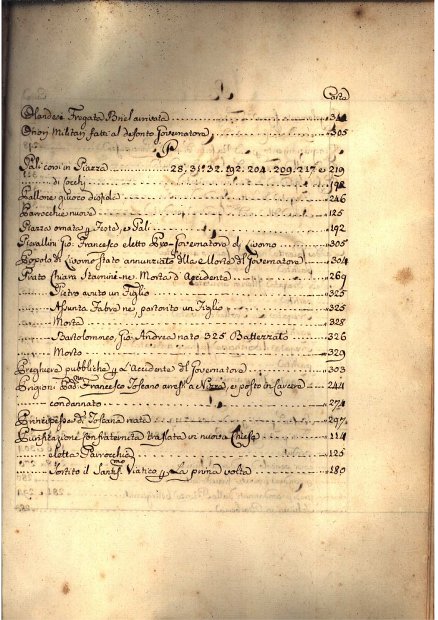 Carta
Olandese Fregata Briel arrivata 344
Onori Militari fatti al defonto Governatore 305
P
Pali corsi in Piazza 28, 31. 32. 192. 204. 209. 217 e 219
di Cocchi 192
Pallone 246
Parrocchie nuove 125
Piazza ornata Feste, e Pali 192
Pierallini Gio: Francesco eletto Governatore di Livorno 305
Popolo di Livorno stato annunziato della Morte del Governatore 304
Prato Chiara Morta d'Accidente 269
Pietro avuto un Figlio 325
Assunta partorito un Figlio 325
Morta 328
Bartolommeo, Gio: Andrea nato 325 Battezzato 326
Morto 329
Preghiere pubbliche p. l'Accidente del Governatore 303
Prigioni Francesco Toscano a Nizza, e posto in Carcere 244
condannato 274
Printipessa di Toscana nata 297
Purificazione Confraternita traslata in nuova Chiesa 114
eletta Parrocchia 125
Sortito il Santis. Viatico p. La prima volta 180